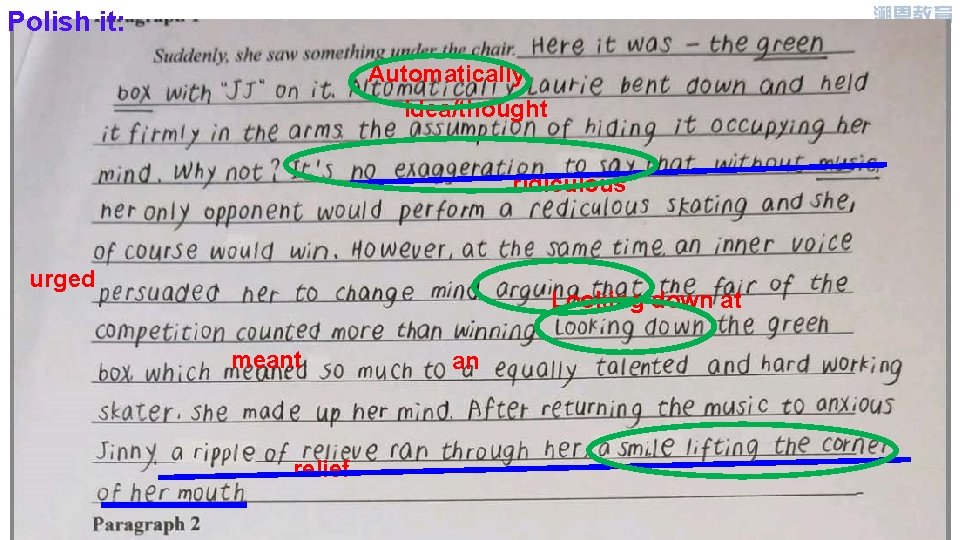 Polish it:
潮恩教育
Suddenly, she saw something under the chair. Here it was - the green
Automatically
box with "JJ" on it. Altomatically Laurie bent down and held
idea/thought
it firmly in the arms, the assumption of hiding it occupying her
mind. Why not? It's no exaggeration to say that without music,
ridiculous
her only opponent would perform a rediculous skating and she,
of course would win. However, at the same time, an inner voice
urged
persuaded her to change mind, arguing that the fair of the
Looking down at
competition counted more than winning. Looking down the green
meant an
box, which meaned so much to a equally talented and hard working
skater, she made up her mind. After returning the music to anxious
Jinny, a ripple of relieve ran through her, a smile lifting the corner
relief
of her mouth
Paragraph 2